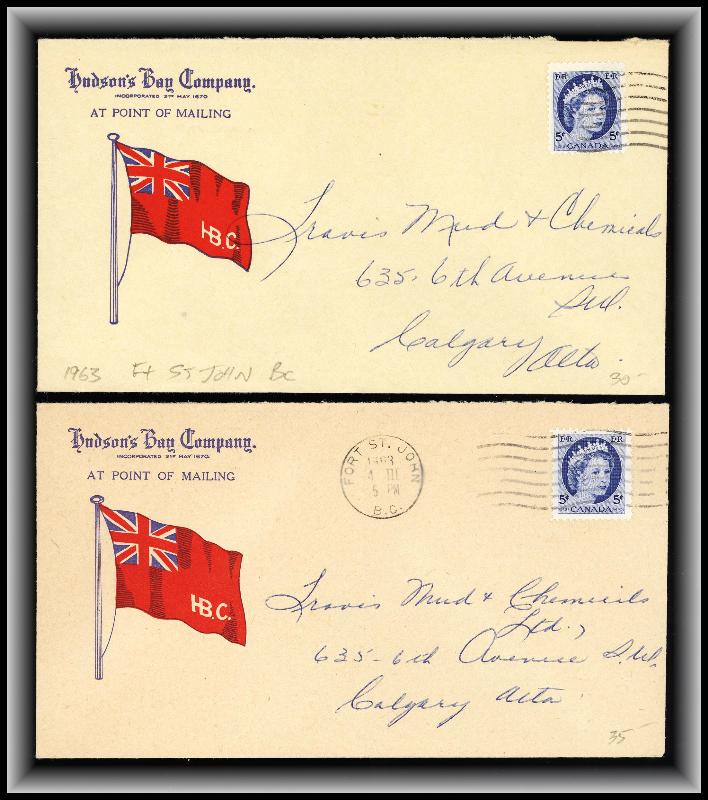 Hudson's Bay Company.
INCORPORATED 2ND MAY 1670
AT POINT OF MAILING
E II R E II R
5¢
CANADA
H.B.C.
Travis Mud & Chemicals
635-6th Avenue
S.W.
Calgary
Alta.
1963 Ft ST JOHN BC
30-
Hudson's Bay Company.
INCORPORATED 2ND MAY 1670.
AT POINT OF MAILING
FORT ST. JOHN
1963
4 III
5 PM
B.C.
E II R E II R
5¢ 5¢
CANADA
H.B.C.
Travis Mud & Chemicals
Ltd.,
635-6th Avenue S.W.
Calgary Alta
35-